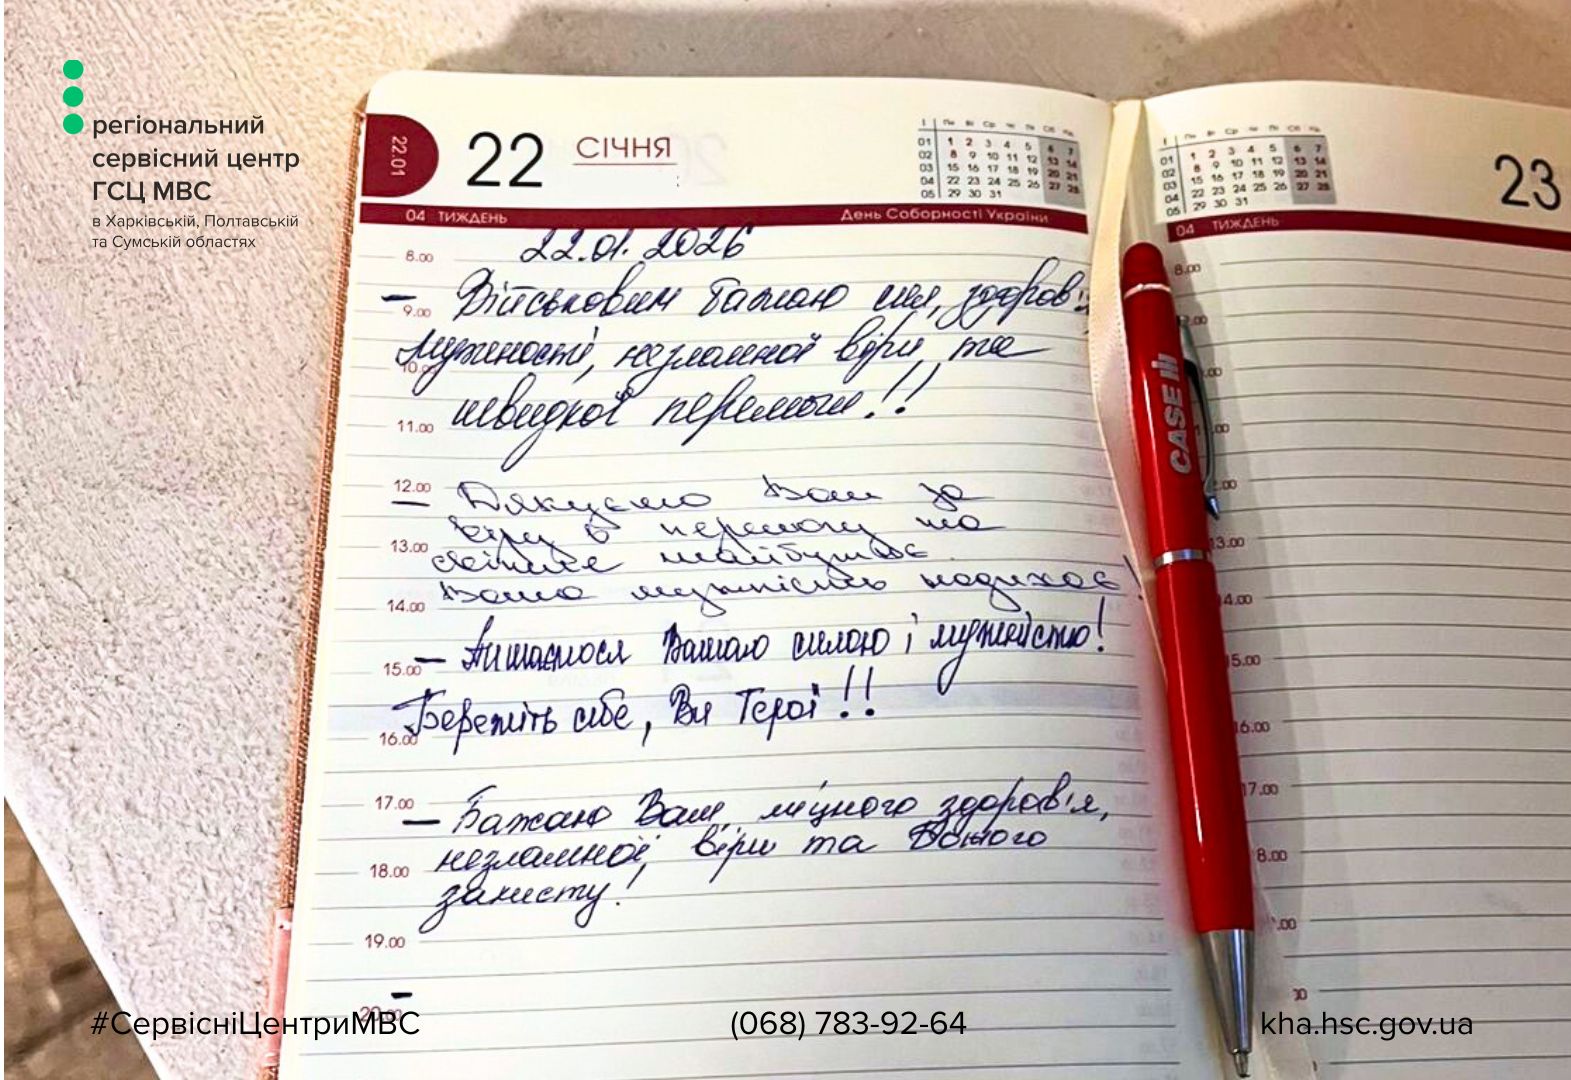 регіональний
сервісний центр
ГСЦ МВС
в Харківській, Полтавській
та Сумській областях
22.01
22 СІЧНЯ
1 Пн Вт Ср Чт Пт Сб Нд
01 1 2 3 4 5 6 7
02 8 9 10 11 12 13 14
03 15 16 17 18 19 20 21
04 22 23 24 25 26 27 28
05 29 30 31
04 ТИЖДЕНЬ День Соборності України
22.01.2026
8.00
– Військовим бажаю сил, здоров'
9.00
мужності, незламної віри та
10.00
швидкої перемоги!!
11.00
12.00
– Дякуємо Вам за
віру в перемогу та
13.00
світле майбутнє.
Ваша мужність надихає!
14.00
– Пишаємося Вашою силою і мужністю!
15.00
Бережіть себе, Ви Герої!!
16.00
17.00
– Бажаю Вам, міцного здоров'я,
незламної, віри та Божого
18.00
захисту!
19.00
20.00
1 Пн Вт Ср Чт Пт Сб Нд
01 1 2 3 4 5 6 7
02 8 9 10 11 12 13 14
03 15 16 17 18 19 20 21
04 22 23 24 25 26 27 28
05 29 30 31
23
04 ТИЖДЕНЬ
8.00
CASE IH
13.00
14.00
15.00
16.00
17.00
8.00
.00
#СервісніЦентриМВС (068) 783-92-64 kha.hsc.gov.ua